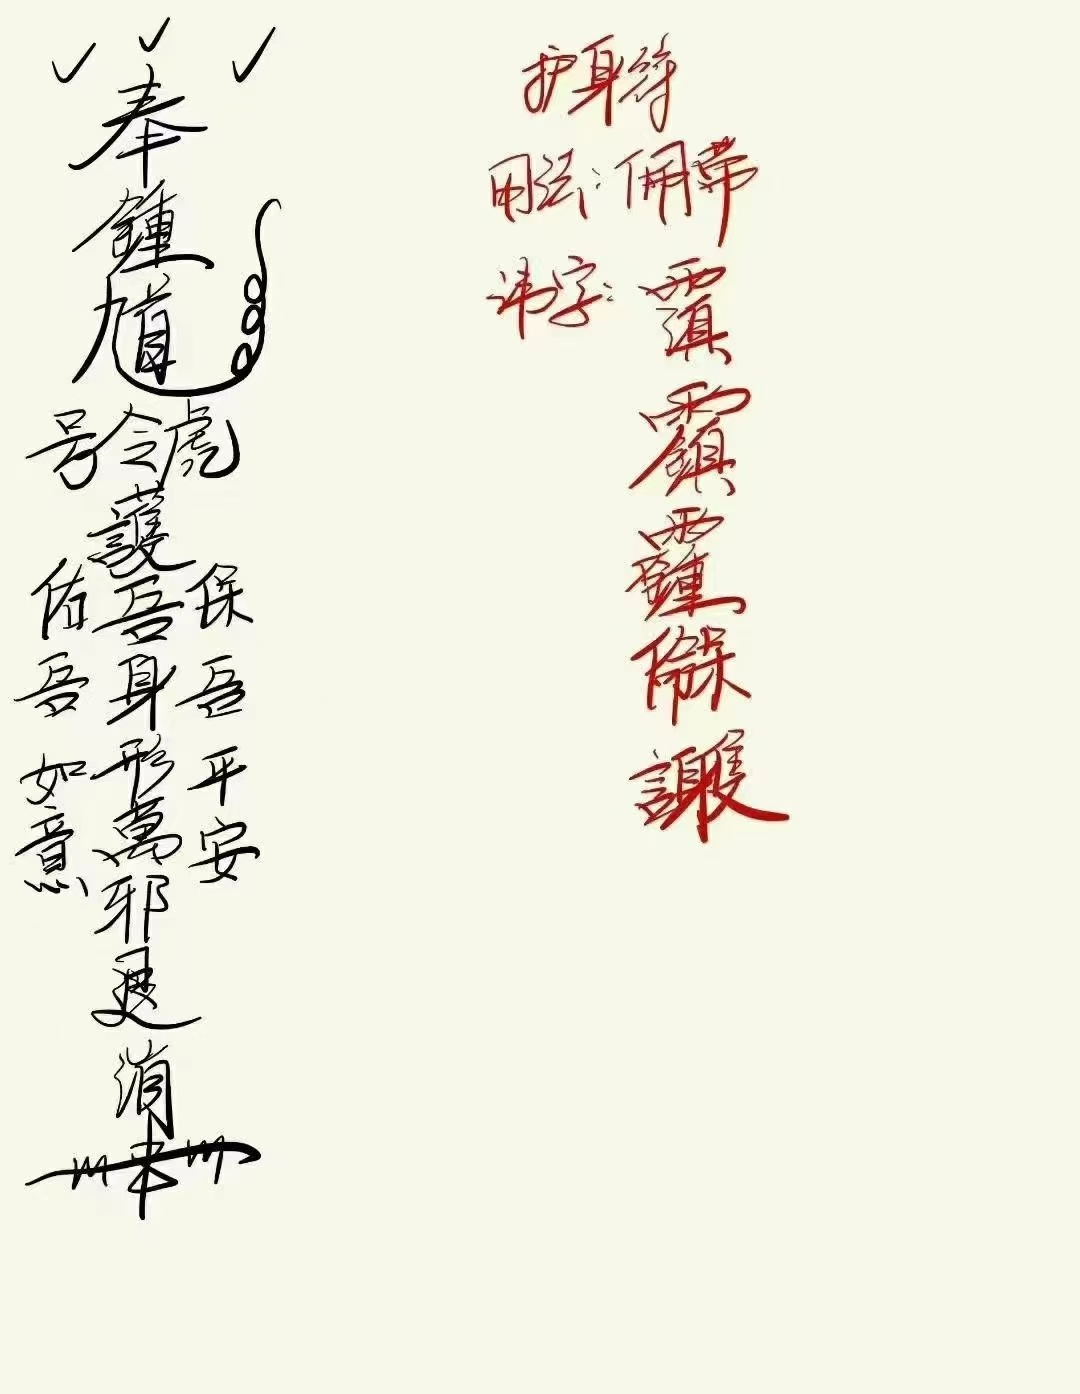 奉
鍾
馗
号令虎
護
吾身形萬邪退消
保吾平安
佑吾如意
护身符
用法:佩带
讳字: